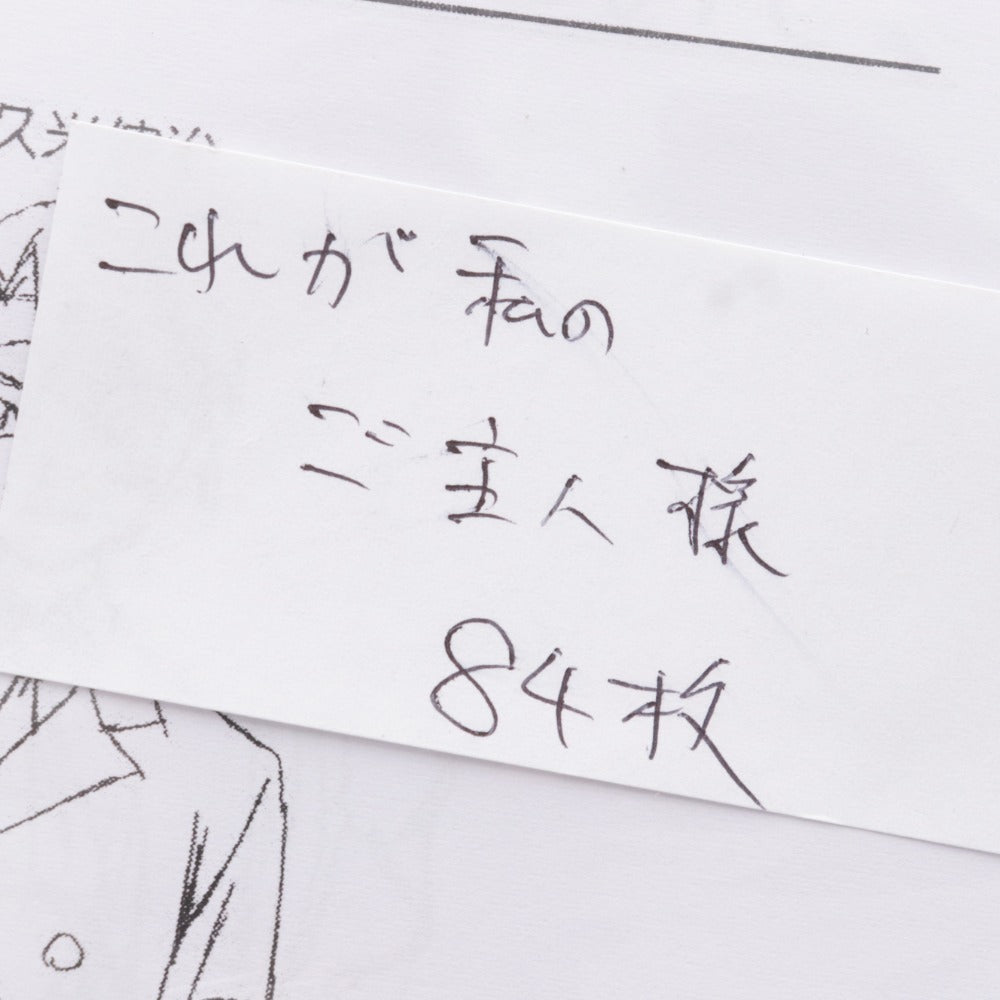 これが私の
ご主人様
84枚